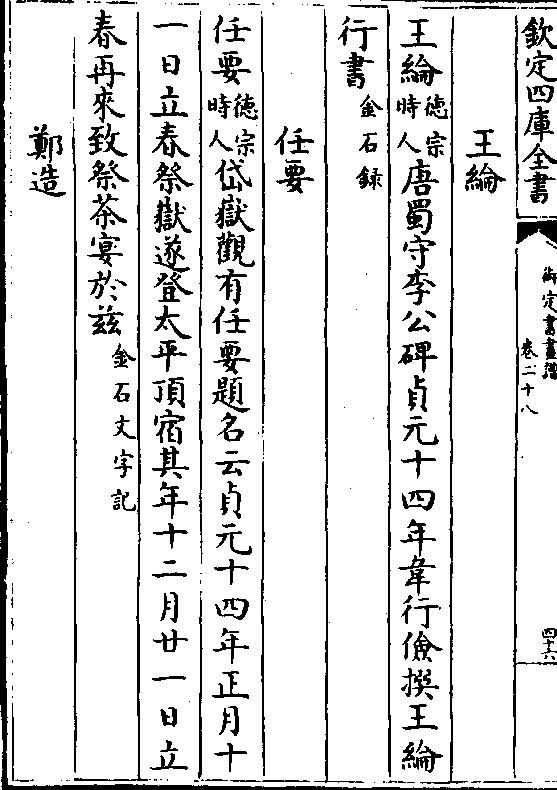 欽定四庫全書
御定書畫譜
卷二十八
四十六
王綸
王綸德宗時人唐蜀守李公碑貞元十四年韋行儉撰王綸
行書金石録
任要
任要德宗時人岱嶽觀有任要題名云貞元十四年正月十
一日立春祭嶽遂登太平頂宿其年十二月廿一日立
春再來致祭茶宴於兹金石文字記
鄭造